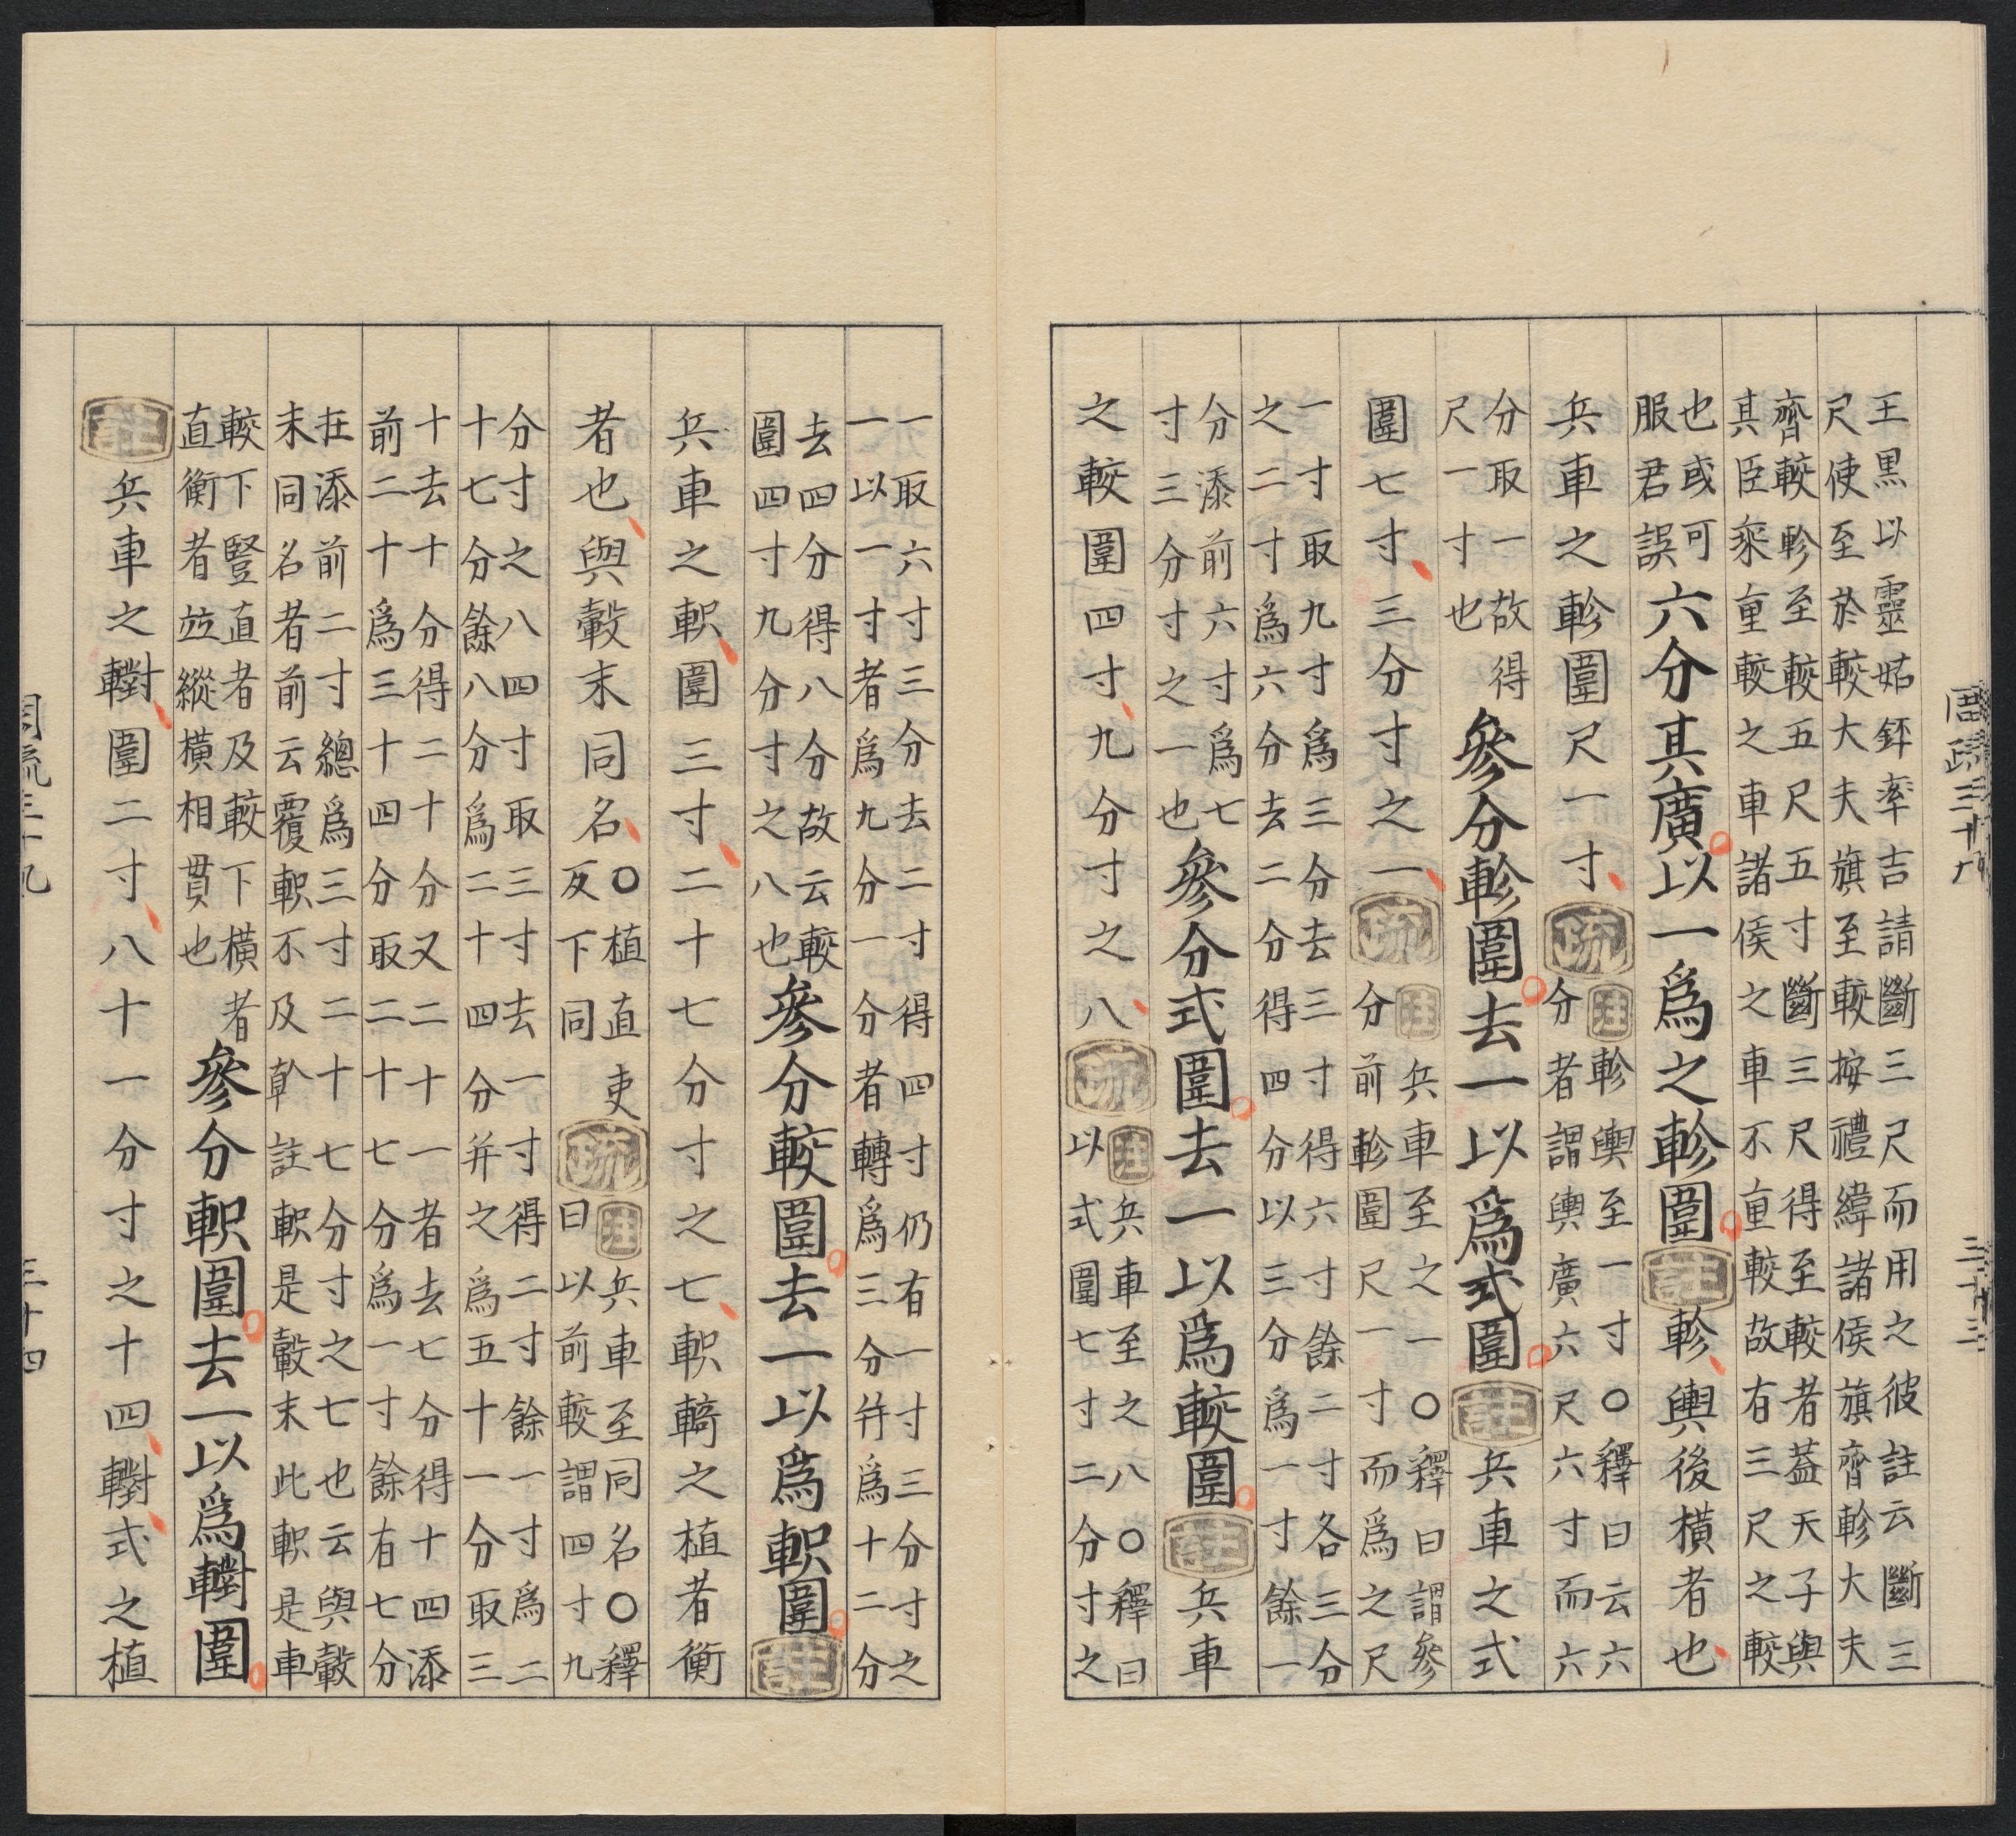 王黑以靈姑銔率吉請斷三尺而用之彼註云斷三
尺使至於較大夫旗至較按禮緯諸侯旗齊軫大夫
齊較軫至較五尺五寸斷三尺得至較者蓋天子與
其臣乘重較之車諸侯之車不重較故有三尺之較
也或可
服君誤
六分其廣以一爲之軫圍
註
軫輿後橫者也
兵車之軫圍尺一寸
疏
註軫輿至一寸○釋曰云六
分者謂輿廣六尺六寸而六
分取一故得
尺一寸也
參分軫圍去一以爲式圍
註
兵車之式
圍七寸三分寸之一
疏
註兵車至之一○釋曰謂參
分前軫圍尺一寸而爲之尺
一寸取九寸爲三分去三寸得六寸餘二寸各三分
之二寸爲六分去二分得四分以三分爲一寸餘一
分添前六寸爲七
寸三分寸之一也
參分式圍去一以爲較圍
註
兵車
之較圍四寸九分寸之八
疏
註兵車至之八○釋曰
以式圍七寸二分寸之
一取六寸三分去二寸得四寸仍有一寸三分寸之
一以一寸者爲九分一分者轉爲三分并爲十二分
去四分得八分故云較
圍四寸九分寸之八也
參分較圍去一以爲軹圍
註
兵車之軹圍三寸二十七分寸之七軹輢之植者衡
者也與轂末同名
○植直吏
反下同
疏
註兵車至同名○釋
曰以前較謂四寸九
分寸之八四寸取三寸去一寸得二寸餘一寸爲二
十七分餘八分爲二十四分并之爲五十一分取三
十去十分得二十分又二十一者去七分得十四添
前二十爲三十四分取二十七分爲一寸餘有七分
在添前二寸總爲三寸二十七分寸之七也云與轂
末同名者前云覆軹不及幹註軹是轂末此軹是車
較下豎直者及較下橫者
直衡者竝縱橫相貫也
參分軹圍去一以爲轛圍
註
兵車之轛圍二寸八十一分寸之十四轛式之植
周疏三十九
三十三
周疏三十九
三十四